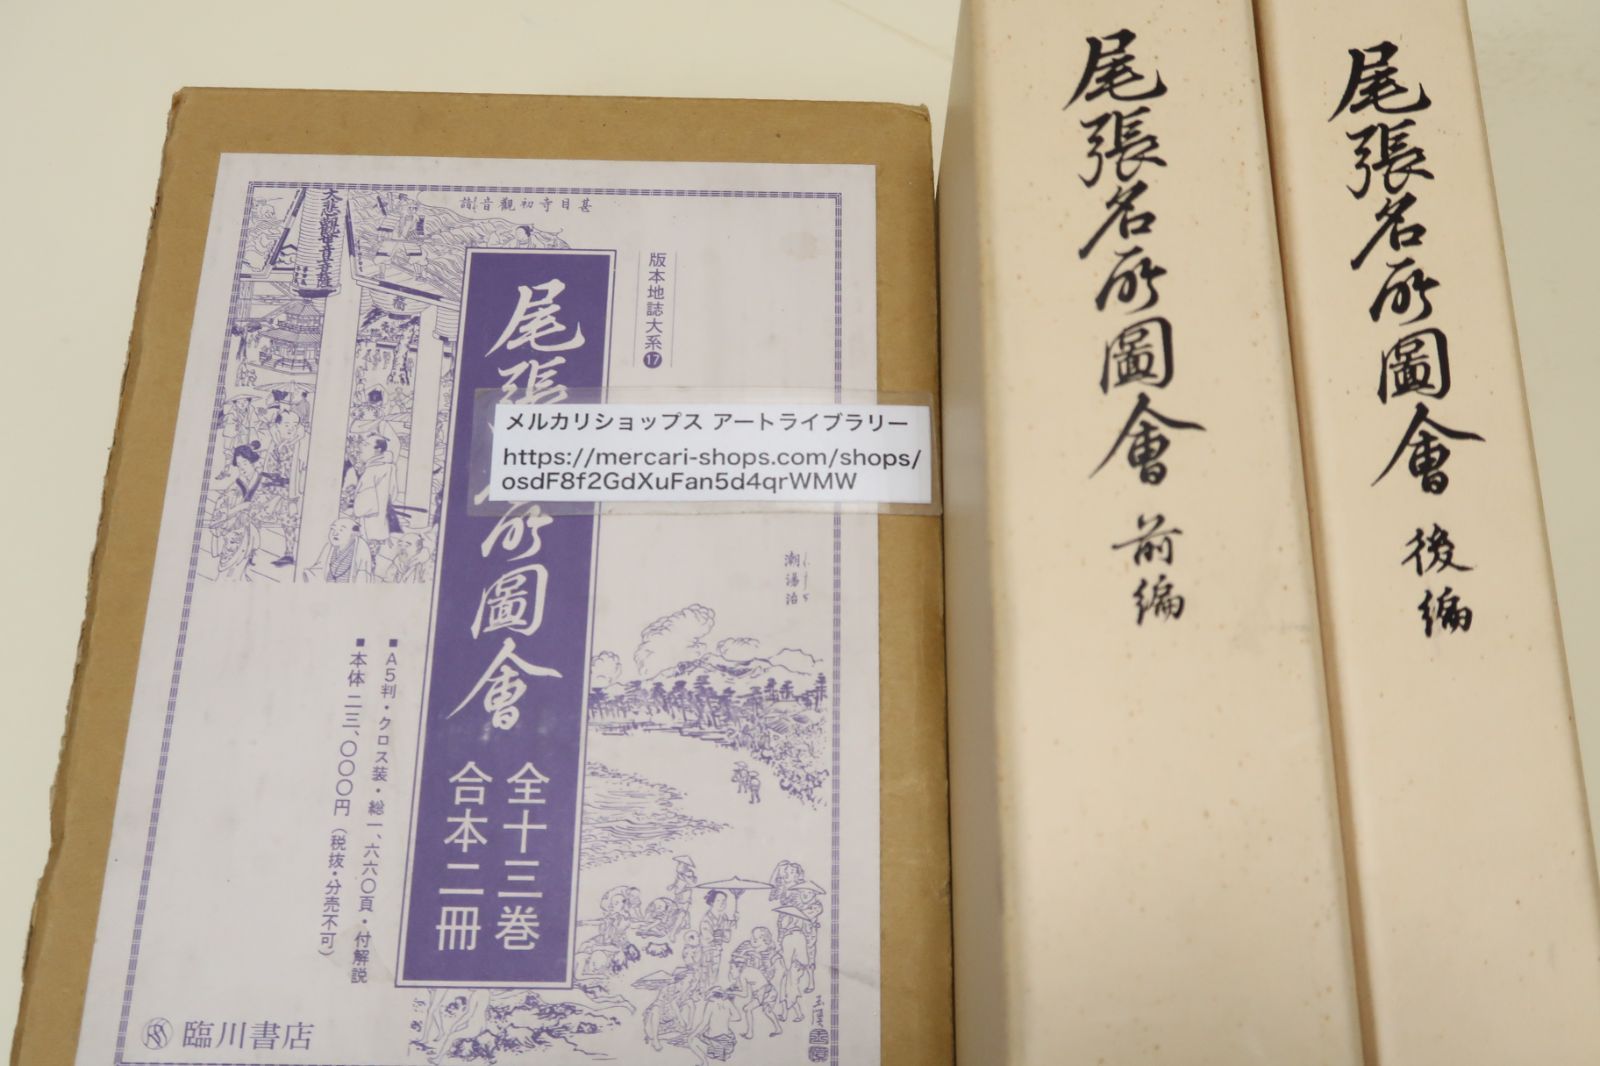 甚目寺初観音詣
大悲観世音菩薩
版本地誌大系⑰
尾張名所圖會
全十三巻
合本二冊
メルカリショップス アートライブラリー
https://mercari-shops.com/shops/
osdF8f2GdXuFan5d4qrWMW
潮湯治
■A5判・クロス装・総一、六六〇頁・付解説
■本体 二三、〇〇〇円（税抜・分売不可）
臨川書店
尾張名所圖會 前編
尾張名所圖會 後編